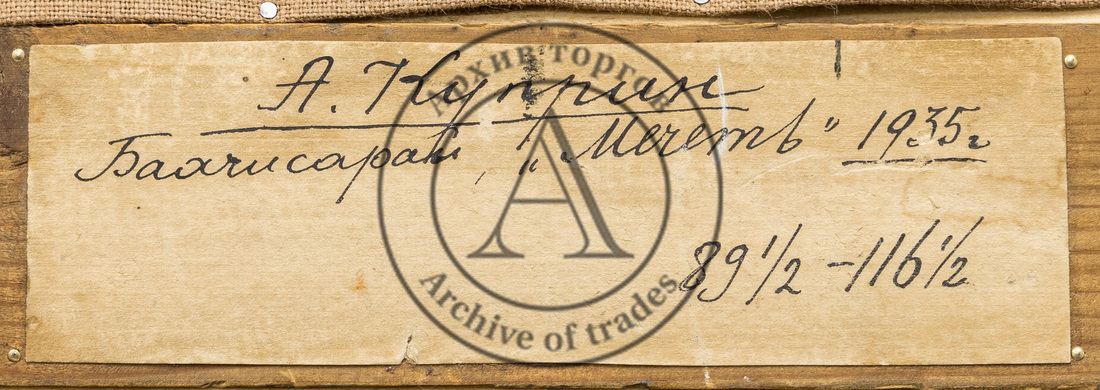 А. Куприн
Бахчисарай, „Мечеть" 1935г
89 1/2 – 116 1/2
Архив торгов
A
Archive of trades